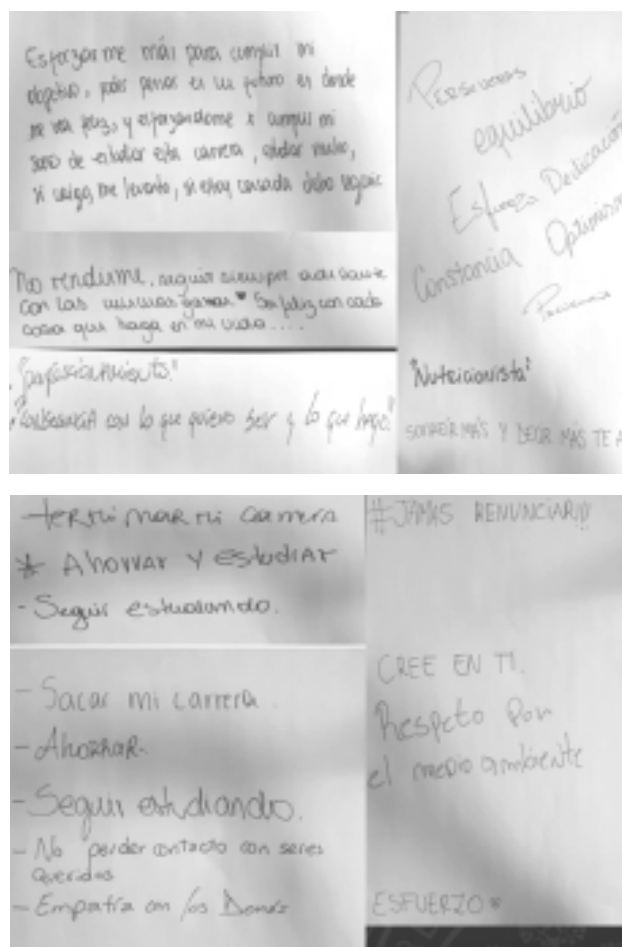 Esforzarme más para cumplir mi
objetivo, poder pensar en un futuro en donde
me vea feliz, y esforzandome x cumplir mi
sueño de estudiar esta carrera, estudiar mucho,
si caigo, me levanto, si estoy cansada debo seguir
No rendirme, seguir siempre adelante
con las mismas ganas♥ Ser feliz con cada
cosa que haga en mi vida....
"perfeccionamiento."
"con lo que quiero ser y lo que hago"
Perseverar
equilibrio
Esfuerzo Dedicación
Constancia Optimismo
Paciencia
"Nutricionista"
SONREÍR MÁS Y DECIR MÁS TE A
-terminar mi carrera
* Ahorrar y estudiar
- Seguir estudiando.
- Sacar mi carrera.
- Ahorrar.
- Seguir estudiando.
- No perder contacto con seres
queridos
- Empatía con los Demás
#JAMAS RENUNCIARIA
CREE EN TI.
Respeto por
el medio ambiente
ESFUERZO*